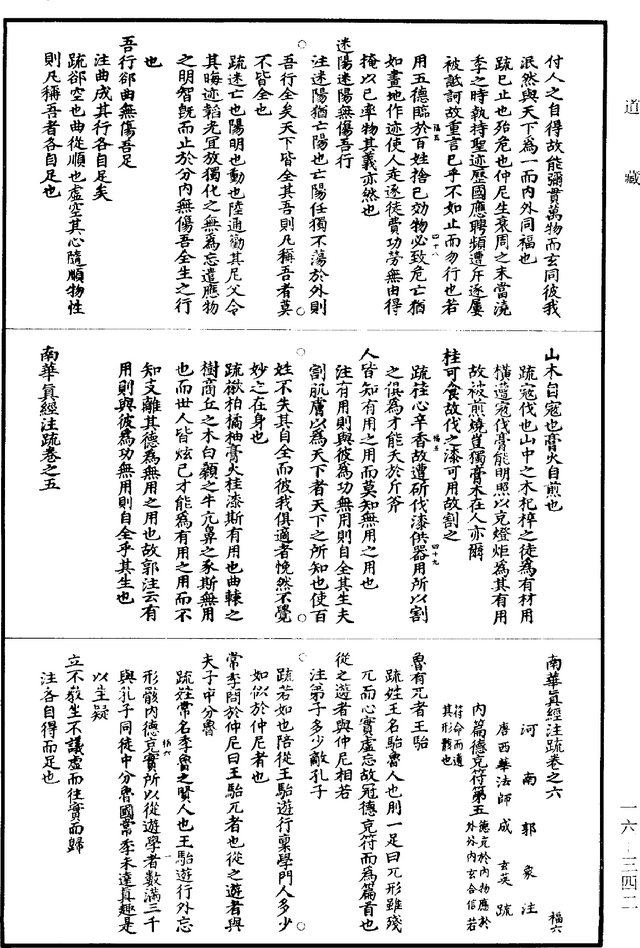 道藏
付人之自得故能彌貫萬物而玄同彼我
泯然與天下為一而内外同福也
疏已止也殆危也仲尼生衰周之末當澆
季之時執持聖迹歷國應聘頻遭斥逐屢
被詆訶故重言已乎不如止而勿行也若
用五德臨於百姓捨己効物必致危亡猶
如畫地作迹使人走逐徒費功勞無由得
掩以己率物其義亦然也
迷陽迷陽無傷吾行
注迷陽猶亡陽也亡陽任獨不蕩於外則
吾行全矣天下皆全其吾則凡稱吾者莫
不皆全也
疏迷亡也陽明也動也陸通勸其尼父令
其晦迹韜光宜放獨化之無為忘遣應物
之明智旣而止於分内無傷吾全生之行
也
吾行郤曲無傷吾足
注曲成其行各自足矣
疏郤空也曲從順也虛空其心隨順物性
則凡稱吾者各自足也
福五
四十八
山木自寇也膏火自煎也
疏寇伐也山中之木杞梓之徒為有材用
橫遭寇伐膏能明照以充燈炬為其有用
故被煎燒豈獨膏木在人亦爾
桂可食故伐之漆可用故割之
疏桂心辛香故遭斫伐漆供器用所以割
之俱為才能夭於斤斧
人皆知有用之用而莫知無用之用也
注有用則與彼為功無用則自全其生夫
割肌膚以為天下者天下之所知也使百
姓不失其自全而彼我俱適者悗然不覺
妙之在身也
疏欲柏橘柚膏火桂漆斯有用也曲轅之
樹商丘之木白顙之牛亢鼻之豕斯無用
也而世人皆炫己才能為有用之用而不
知支離其德為無用之用也故郭注云有
用則與彼為功無用則自全乎其生也
南華真經注疏卷之五
福五
四十九
南華真經注疏卷之六
福六
河南郭象注
唐西華法師成玄英疏
内篇德充符第五
德充於内物應於外外内玄合信若符命而遺其形骸也
魯有兀者王駘
疏姓王名駘魯人也刖一足曰兀形雖殘
兀而心實虛忘故冠德充符而為篇首也
從之遊者與仲尼相若
注弟子多少敵孔子
疏若如也陪從王駘遊行稟學門人多少
如似於仲尼者也
常季問於仲尼曰王駘兀者也從之遊者與
夫子中分魯
疏姓常名季魯之賢人也王駘遊行外忘
形骸内德充實所以從遊學者數滿三千
與孔子同徒中分魯國常季未達真趣是
以生疑
立不敎坐不議虛而往實而歸
注各自得而足也
福六
一
一六-三四二